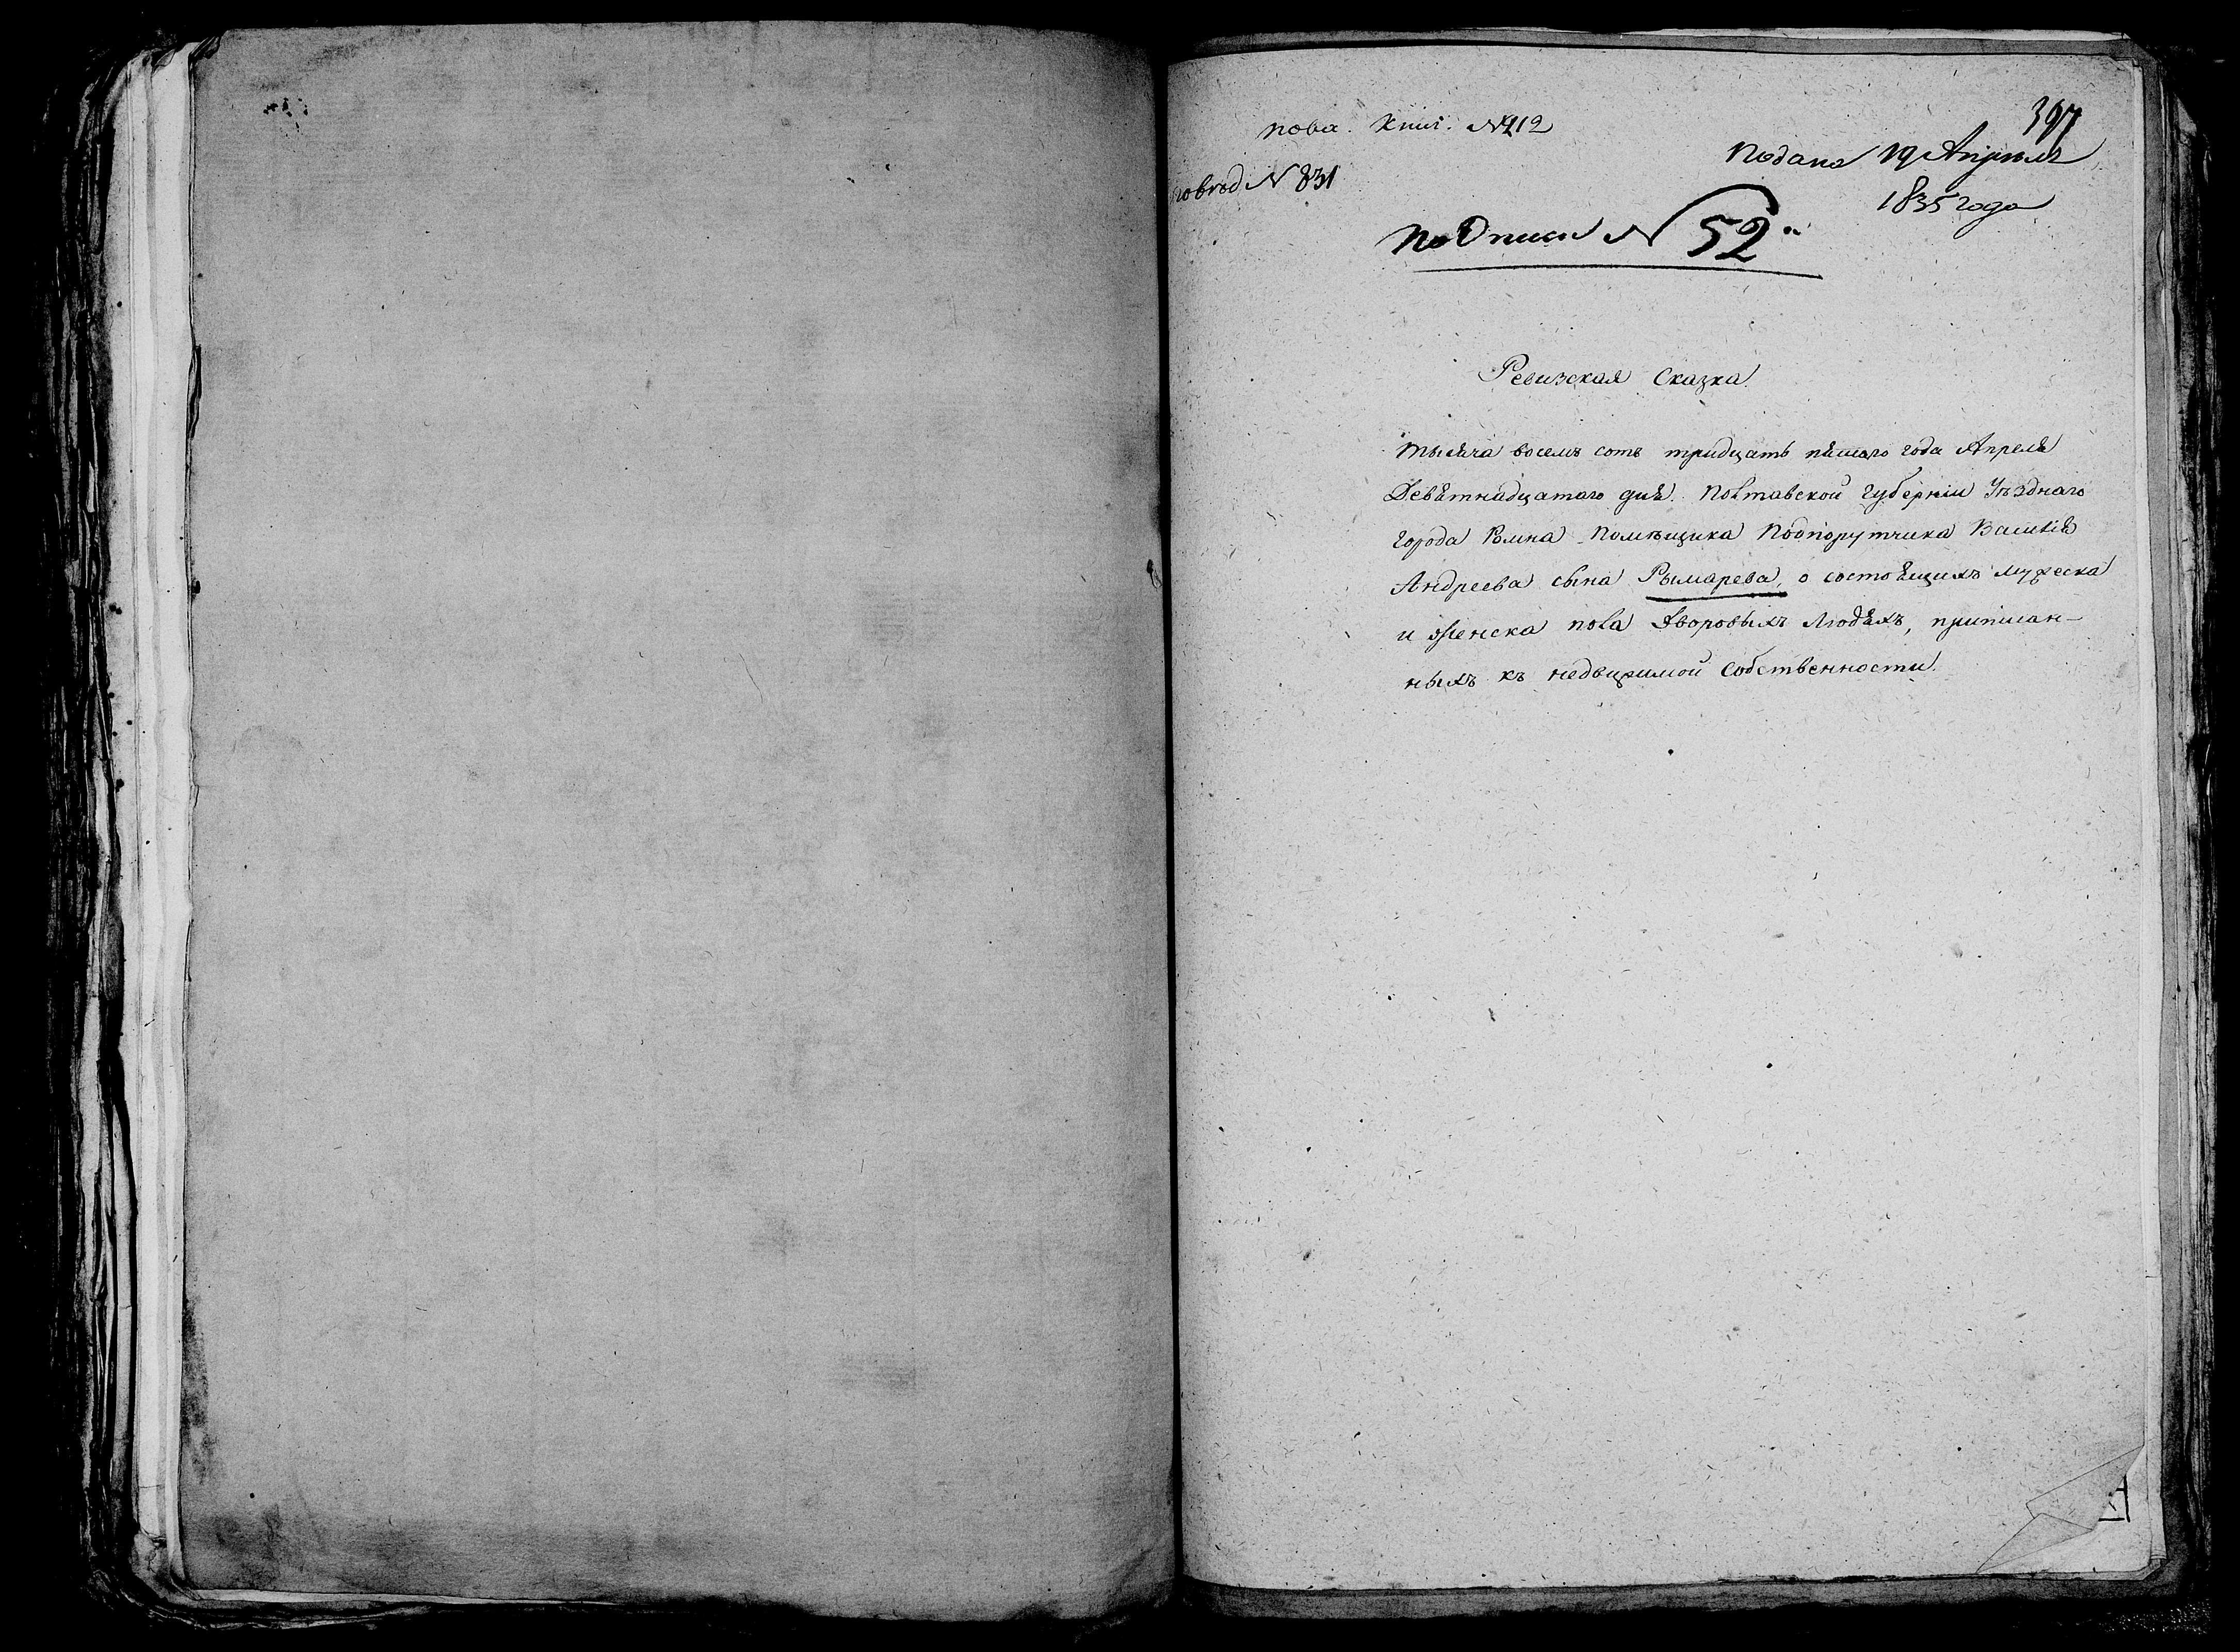 397
пова. Книг. № 212
Подана 19 Апреля
1835 года
повѣд № 831
По Описи № 52.
Ревизская Сказка.
Тысяча восемъ сотъ тридцать пятаго года Апреля
Девятнадцатаго дня. Полтавской Губерніи Уѣзднаго
города Ромна Помѣщика Подпорутчика Василія
Андреева сына Рымарева, о состоящихъ мужеска
и женска пола Дворовыхъ Людяхъ, приписан-
ныхъ къ недвижимой собственности.